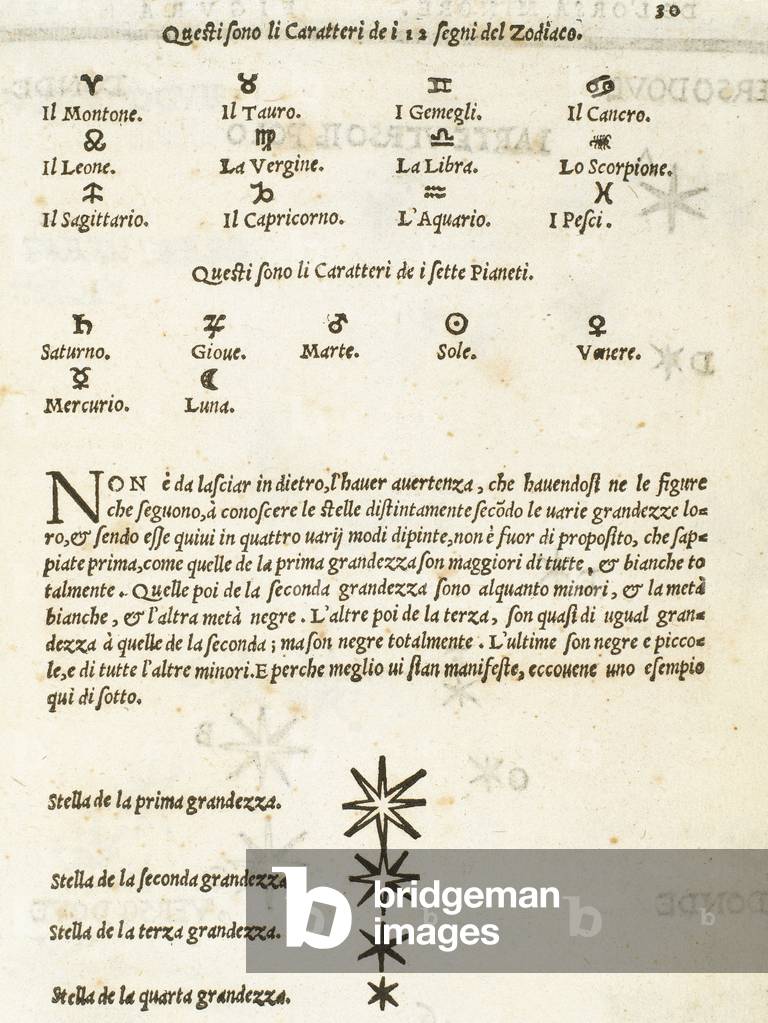 30
Queſti ſono li Caratteri de i 12 ſegni del Zodiaco.
♈ ♉ ♊ ♋
Il Montone. Il Tauro. I Gemegli. Il Cancro.
♌ ♍ ♎ ♏
Il Leone. La Vergine. La Libra. Lo Scorpione.
♐ ♑ ♒ ♓
Il Sagittario. Il Capricorno. L'Aquario. I Peſci.
Queſti ſono li Caratteri de i ſette Pianeti.
♄ ♃ ♂ ☉ ♀
Saturno. Gioue. Marte. Sole. Venere.
☿ ☾
Mercurio. Luna.
NON è da laſciar in dietro, l'hauer auertenza, che hauendoſi ne le figure
che ſeguono, à conoſcere le ſtelle diſtintamente ſecõdo le uarie grandezze lo=
ro, & ſendo eſſe quiui in quattro uarij modi dipinte, non è fuor di propoſito, che ſap=
piate prima, come quelle de la prima grandezza ſon maggiori di tutte, & bianche to
talmente. Quelle poi de la ſeconda grandezza ſono alquanto minori, & la metà
bianche, & l'altra metà negre. L'altre poi de la terza, ſon quaſi di ugual gran=
dezza à quelle de la ſeconda; ma ſon negre totalmente. L'ultime ſon negre e picco=
le, e di tutte l'altre minori. E perche meglio ui ſian manifeſte, eccouene uno eſempio
quì di ſotto.
Stella de la prima grandezza.
Stella de la ſeconda grandezza
Stella de la terza grandezza.
Stella de la quarta grandezza.
b bridgeman
images